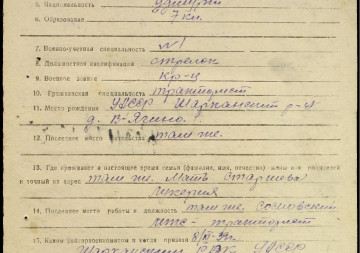 5. Национальность удмурт
6. Образование 7 кл.
7. Военно-учетная специальность №1
8. Должностная квалификация стрелок
9. Военное звание кр-ц
10. Гражданская специальность тракторист
11. Место рождения УАССР Шарканский р-н
д. В-
12. Последнее место жительства там же.
13. Где проживает в настоящее время семья (фамилия, имя, отчество) жены или родителей
и точный их адрес там же. Мать
14. Последнее место работы и должность там же, Сосновский
тракторист
15. Каким райвоенкоматом и когда призван
Шарканским РВК УАССР